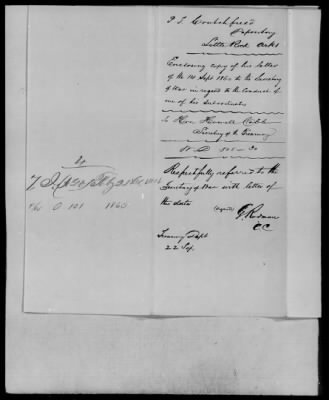 Depositary
Little Rock Arks
Enclosing copy of his letter
of the 10 Sept 1860 to the Secretary
of War in regard to the conduct of
one of his subordinates
To Hon. Howell Cobb
Secretary of the Treasury
W D
Respectfully referred to the
Secretary of War with letter of
this date
(signed) G. Rodman
CC
Treasury Dept
22 Sep.
to
O 101 1860